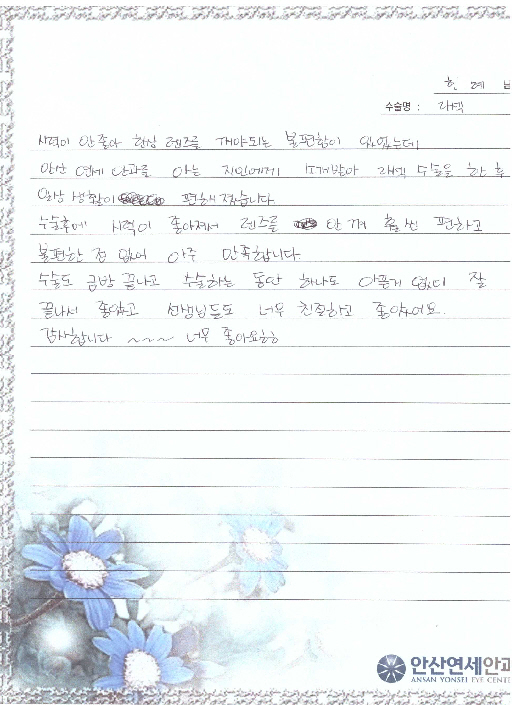 한 예 님
수술명 : 라섹
시력이 안좋아 항상 렌즈를 껴야되는 불편함이 있었는데
안산 연세 안과를 아는 지인에게 소개받아 라섹 수술을 한 후
일상 생활이 편해졌습니다
수술후에 시력이 좋아져서 렌즈를 안 껴 훨씬 편하고
불편한 점 없어 아주 만족합니다
수술도 금방 끝나고 수술하는 동안 하나도 아픔게 없이 잘
끝나서 좋았고 선생님들도 너무 친절하고 좋았어요.
감사합니다 ~~~ 너무 좋아요ㅎㅎ
안산연세안과
ANSAN YONSEI EYE CENT